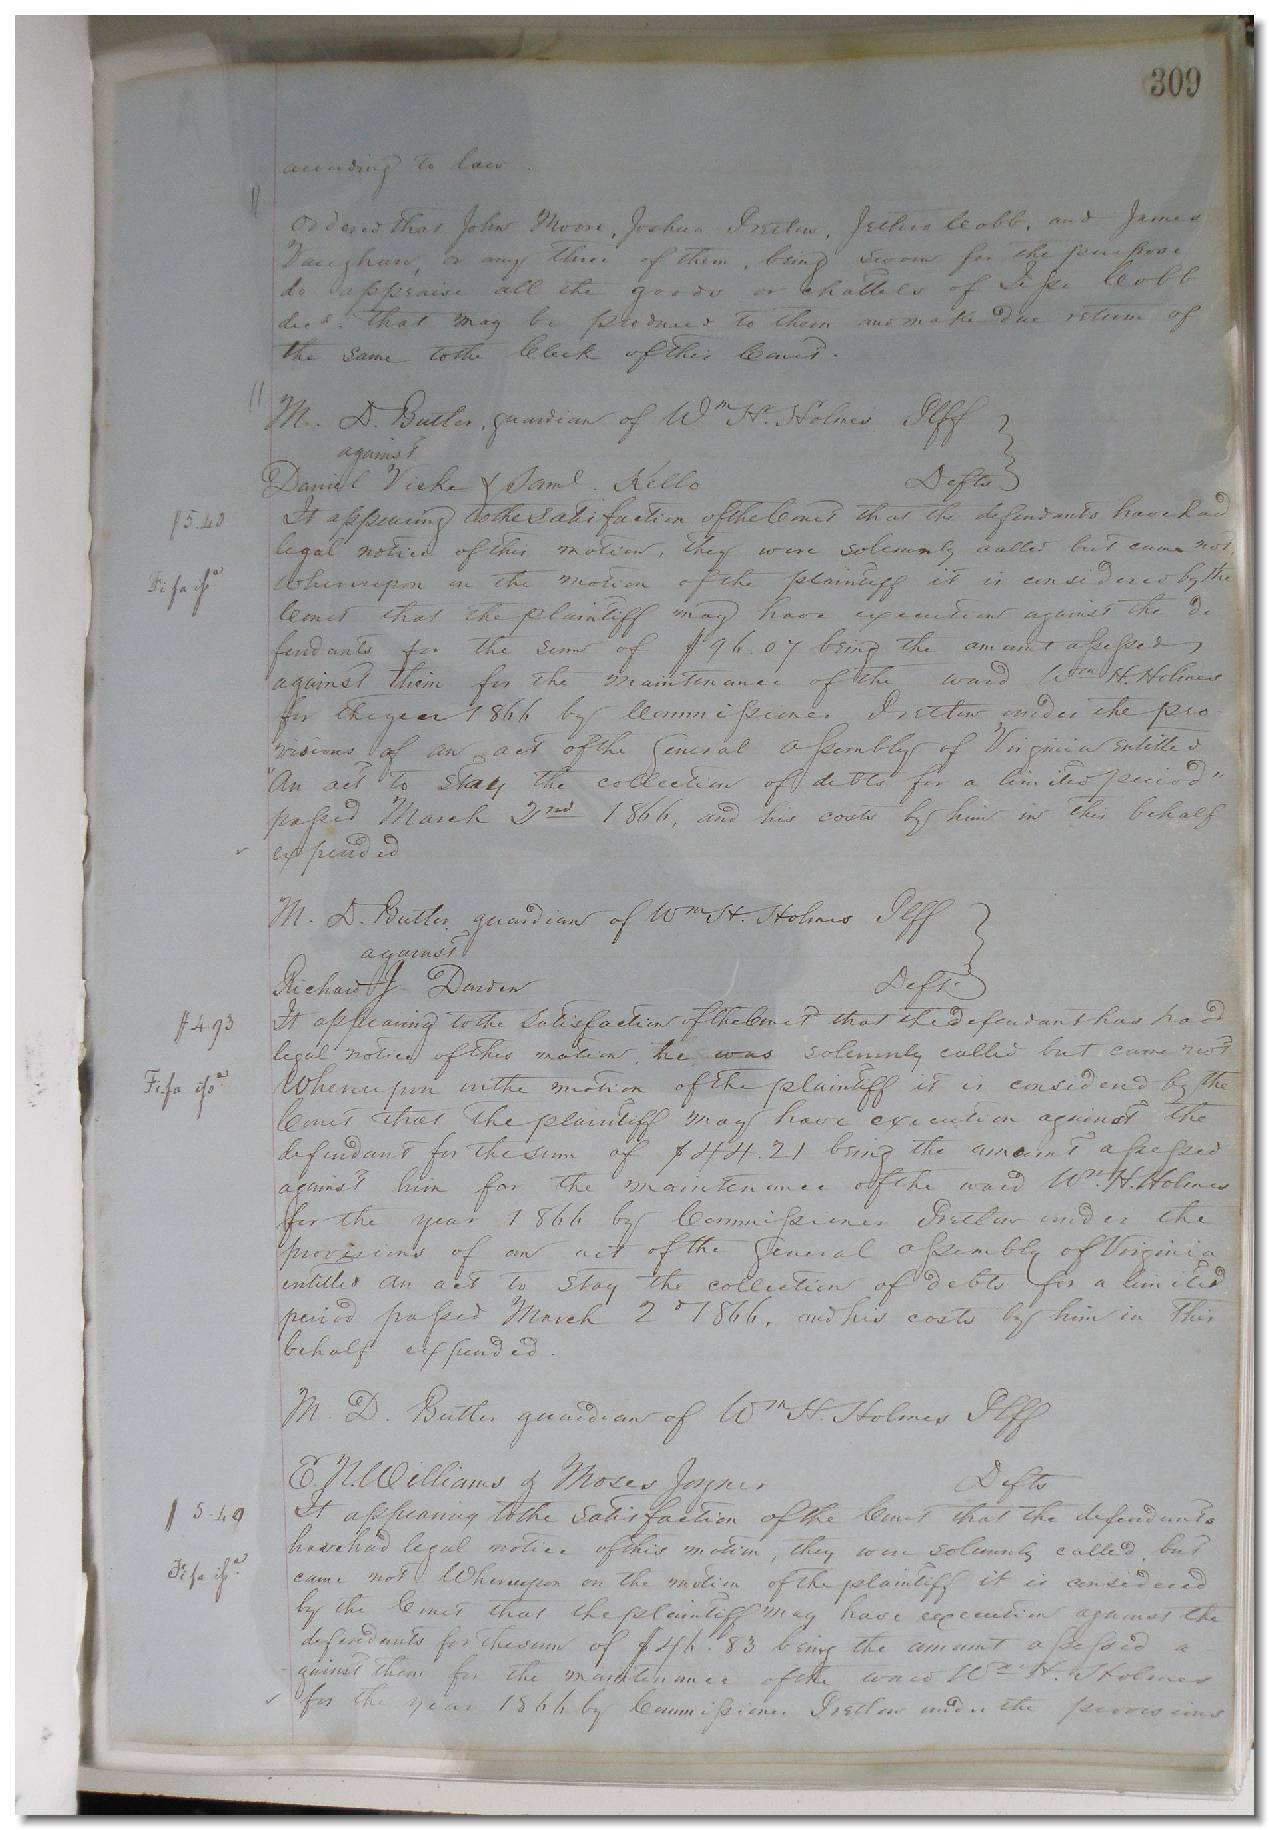 309
according to law.
Ordered that John Moore, Joshua Pretlow, Jethro Cobb, and James
Vaughan, or any three of them, being sworn for the purpose
do appraise all the goods or chattels of Jesse Cobb
decd. that may be produced to them and make due return of
the same to the Clerk of this Court.
M. D. Butler, guardian of Wm H. Holmes Plff
against
Daniel Vick & Saml. Kello Defts
$5.40
It appearing to the satisfaction of the Court that the defendants have had
legal notice of this motion, they were solemnly called but came not,
Fi fa
Whereupon on the motion of the plaintiff it is considered by the
Court that the plaintiff may have execution against the de
fendants for the sum of $96.07 being the amount assessed
against them for the maintenance of the ward Wm H. Holmes
for the year 1866 by Commissioner Pretlow under the pro
visions of an act of the General assembly of Virginia entitled
"An act to stay the collection of debts for a limited period"
passed March 2nd 1866, and his costs by him in this behalf
expended
M. D. Butler guardian of Wm H. Holmes Plff
against
Richard J. Darden Deft.
$4.93
It appearing to the satisfaction of the Court that the defendant has had
legal notice of this motion he was solemnly called but came not
Fi fa
Whereupon on the motion of the plaintiff it is considered by the
Court that the plaintiff may have execution against the
defendant for the sum of $44.21 being the amount assessed
against him for the maintenance of the ward Wm. H. Holmes
for the year 1866 by Commissioner Pretlow under the
provisions of an act of the General assembly of Virginia
entitled an act to stay the collection of debts for a limited
period passed March 2d 1866, and his costs by him in this
behalf expended.
M. D. Butler guardian of Wm H. Holmes Plff
E. N. Williams & Moses Joyner Defts
$5.49
It appearing to the satisfaction of the Court that the defendants
have had legal notice of this motion, they were solemnly called, but
Fi fa
came not Whereupon on the motion of the plaintiff it is considered
by the Court that the plaintiff may have execution against the
defendants for the sum of $46.83 being the amount assessed a
gainst them for the maintenance of the ward Wm H. Holmes
for the year 1866 by Commissioner Pretlow under the provisions